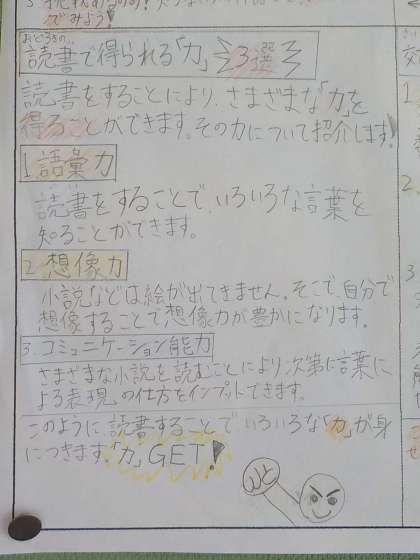 でみよう!
おどろきの…
読書で得られる「力」3選
読書をすることにより、さまざまな「力」を
得ることができます。その力について紹介します!
1.語彙力
読書をすることで、いろいろな言葉を
知ることができます。
2.想像力
小説などは絵が出てきません。そこで、自分で
想像することで想像力が豊かになります。
3.コミュニケーション能力
さまざまな小説を読むことにより次第に言葉に
よる表現の仕方をインプットできます。
このように読書することでいろいろな「力」が身
につきます。「力」GET!